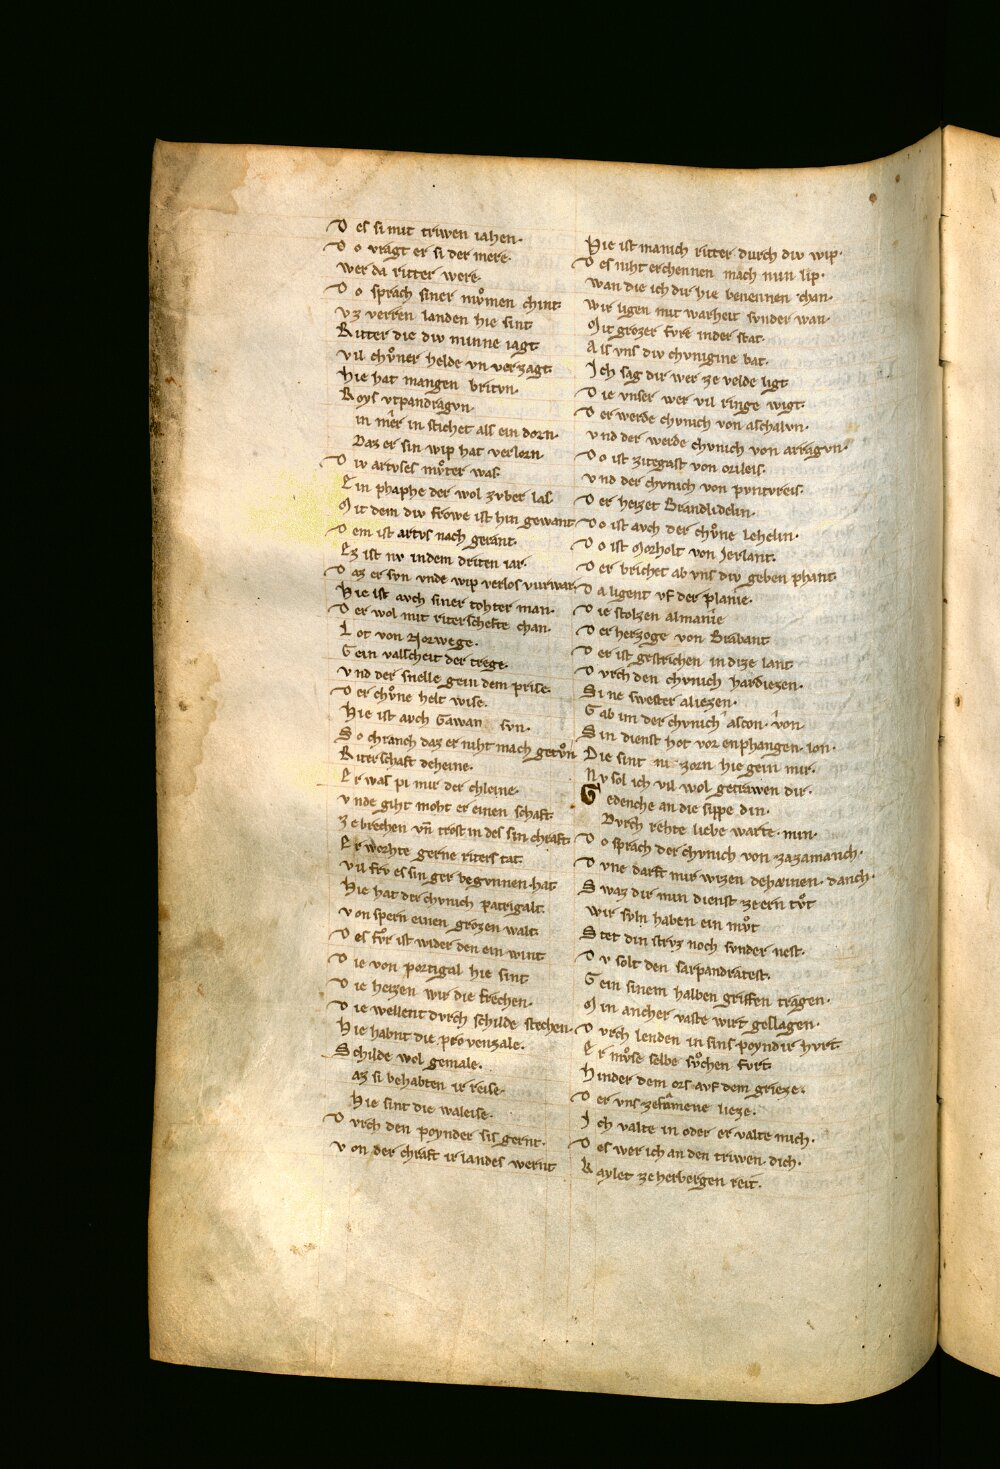 D es si mit triwen iahen·
D o vragt er si der mere·
wer da ritter were
D o sprach siner mvͦmen chint·
v z verren landen hie sint
R itter die div minne iagt
v il chvͦner helde vn verzagt·
hie hat mangen britvn·
R oys vtpandragvn·
in mêr in stichet als ein dorn·
Daz er sin wip hat verlorn
D iv artvses mvͦter was·
E in phaphe der wol zvber las
M it dem div frowe ist hin gewant
D em ist artvs nach gerant·
E z ist nv indem driten iar·
D az er svn vnde wip verlos vurwar
hie ist avch siner tohter man·
D er wol mit riterschefte chan·
L ot von Norwege·
G ein valscheit der trege·
v nd der snelle gein dem prise·
D er chvͦne helt wise·
hie ist avch Gawan svn·
S o chranch daz er niht mach getvͦn
R iterschaft deheine·
E r was pi mir der chleine·
v nde giht moht er einen schaft·
z e brechen vn̄ trost in des sin chraft·
E r worhte gerne riters tat·
v il frv es sin ger begvnnen hat·
hie hat der chvnich patrigalt
v on spern einen grozen walt·
D es fvͦr ist wider den ein wint
D ie von portigal hie sint
D ie heizen wir die frechen·
D ie wellent dvrch schilde stechen·
hie habnt die provenzale·
S childe wol gemale·
az si behabten ir reise·
hie sint die waleise·
D vrch den poynder sis gernt·
v on der chraft ir landes wernt
hie ist manich ritter dvrch div wip·
D es niht erchennen mach min lip·
wan die ich dir hie benennen chan·
wir ligen mit warheit svnder wan·
M it grozer fvre inder stat·
A ls vns div chvnigine bat·
I ch sag dir wer ze velde ligt
D ie vnser wer vil ringe wigt·
D er werde chvnich von aschalvn·
v nd der werde chvnich von arragvn·
D o ist zitegast von orileis·
v nd der chvnich von pvntvreis·
D er heizet Brandlidelin·
D o ist avch der chvͦne lehelin·
D o ist Morholt von Jerlant·
D er brichet ab vns div geben phant·
D a ligent vf der planie·
D ie stolzen almanie
D er herzoge von Brabant
D er ist gestrichen in dize lant
D vrch den chvnich hardiezen·
S i ne swester aliezen·
G ab im der chvnich ascon· von·
S in dienst hot vor enphangen· lon·
D ie sint mi zorn hie gein mir·
N v sol ich vil wol getrawen dir·
G edenche an die sippe din·
Dvrch rehte liebe warte· min·
D o sprach der chvnich von zazamanch·
D vne darft mir wizen deheinen· danch·
S waz dir min dienst ze ern tvͦt
wir svln haben ein mvͦt
S tet din strvz noch svnder nest·
D v solt den sarpandratest·
G ein sinem halben griffen tragen·
M in ancher vaste wirt geslagen·
D vrch lenden in sins poyndir hvrt·
E r mvͦse selbe svͦchen fvrt·
hinder dem ors avf dem grieze·
D er vns zesâmene lieze·
I ch valte in oder er valte mich·
D es wer ich an den triwen· dich·
K aylet ze herbergen reit·